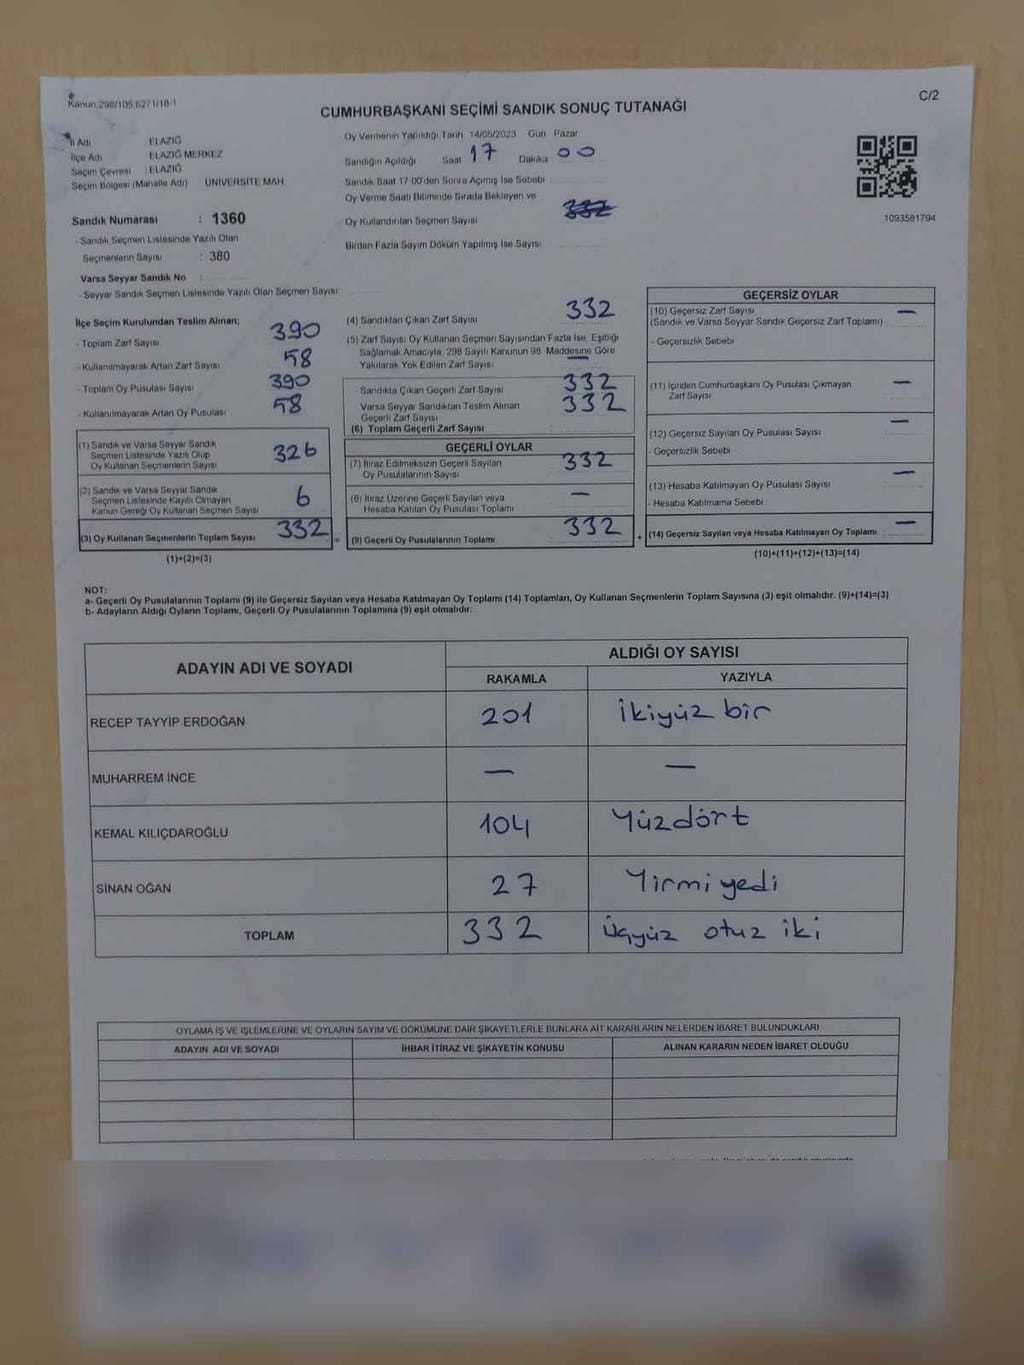 Kanun:298/105,627/1/18-1
C/2
CUMHURBAŞKANI SEÇİMİ SANDIK SONUÇ TUTANAĞI
İl Adı ELAZIĞ
İlçe Adı ELAZIĞ MERKEZ
Seçim Çevresi : ELAZIĞ
Seçim Bölgesi (Mahalle Adı) ÜNİVERSİTE MAH.
Oy Vermenin Yapıldığı Tarih 14/05/2023 Gün Pazar
Sandığın Açıldığı Saat 17 Dakika 00
Sandık Saat 17.00'den Sonra Açımış İse Sebebi
Oy Verme Saati Bitiminde Sırada Bekleyen ve
Oy Kullandırılan Seçmen Sayısı 332
Birden Fazla Sayım Döküm Yapılmış İse Sayısı
1093581794
Sandık Numarası : 1360
- Sandık Seçmen Listesinde Yazılı Olan
Seçmenlerin Sayısı : 380
Varsa Seyyar Sandık No :
- Seyyar Sandık Seçmen Listesinde Yazılı Olan Seçmen Sayısı:
İlçe Seçim Kurulundan Teslim Alınan;
- Toplam Zarf Sayısı 390
- Kullanılmayarak Artan Zarf Sayısı 58
- Toplam Oy Pusulası Sayısı 390
- Kullanılmayarak Artan Oy Pusulası 58
(1) Sandık ve Varsa Seyyar Sandık
Seçmen Listesinde Yazılı Olup
Oy Kullanan Seçmenlerin Sayısı 326
(2) Sandık ve Varsa Seyyar Sandık
Seçmen Listesinde Kayıtlı Olmayan
Kanun Gereği Oy Kullanan Seçmen Sayısı 6
(3) Oy Kullanan Seçmenlerin Toplam Sayısı 332 =
(1)+(2)=(3)
(4) Sandıktan Çıkan Zarf Sayısı 332
(5) Zarf Sayısı Oy Kullanan Seçmen Sayısından Fazla İse, Eşitliği
Sağlamak Amacıyla, 298 Sayılı Kanunun 98. Maddesine Göre
Yakılarak Yok Edilen Zarf Sayısı —
Sandıkta Çıkan Geçerli Zarf Sayısı 332
Varsa Seyyar Sandıktan Teslim Alınan
Geçerli Zarf Sayısı 332
(6) Toplam Geçerli Zarf Sayısı
GEÇERLİ OYLAR
(7) İtiraz Edilmeksizin Geçerli Sayılan
Oy Pusulalarının Sayısı 332
(8) İtiraz Üzerine Geçerli Sayılan veya
Hesaba Katılan Oy Pusulası Toplamı —
(9) Geçerli Oy Pusulalarının Toplamı 332 +
GEÇERSİZ OYLAR
(10) Geçersiz Zarf Sayısı —
(Sandık ve Varsa Seyyar Sandık Geçersiz Zarf Toplamı)
- Geçersizlik Sebebi
(11) İçinden Cumhurbaşkanı Oy Pusulası Çıkmayan —
Zarf Sayısı
(12) Geçersiz Sayılan Oy Pusulası Sayısı —
- Geçersizlik Sebebi
(13) Hesaba Katılmayan Oy Pusulası Sayısı —
- Hesaba Katılmama Sebebi
(14) Geçersiz Sayılan veya Hesaba Katılmayan Oy Toplamı —
(10)+(11)+(12)+(13)=(14)
NOT:
a- Geçerli Oy Pusulalarının Toplamı (9) ile Geçersiz Sayılan veya Hesaba Katılmayan Oy Toplamı (14) Toplamları, Oy Kullanan Seçmenlerin Toplam Sayısına (3) eşit olmalıdır. (9)+(14)=(3)
b- Adayların Aldığı Oyların Toplamı, Geçerli Oy Pusulalarının Toplamına (9) eşit olmalıdır.
ADAYIN ADI VE SOYADI ALDIĞI OY SAYISI
RAKAMLA YAZIYLA
RECEP TAYYİP ERDOĞAN 201 İkiyüz bir
MUHARREM İNCE — —
KEMAL KILIÇDAROĞLU 104 Yüzdört
SİNAN OĞAN 27 Yirmi yedi
TOPLAM 332 Üçyüz otuz iki
OYLAMA İŞ VE İŞLEMLERİNE VE OYLARIN SAYIM VE DÖKÜMÜNE DAİR ŞİKAYETLERLE BUNLARA AİT KARARLARIN NELERDEN İBARET BULUNDUKLARI
ADAYIN ADI VE SOYADI İHBAR İTİRAZ VE ŞİKAYETİN KONUSU ALINAN KARARIN NEDEN İBARET OLDUĞU